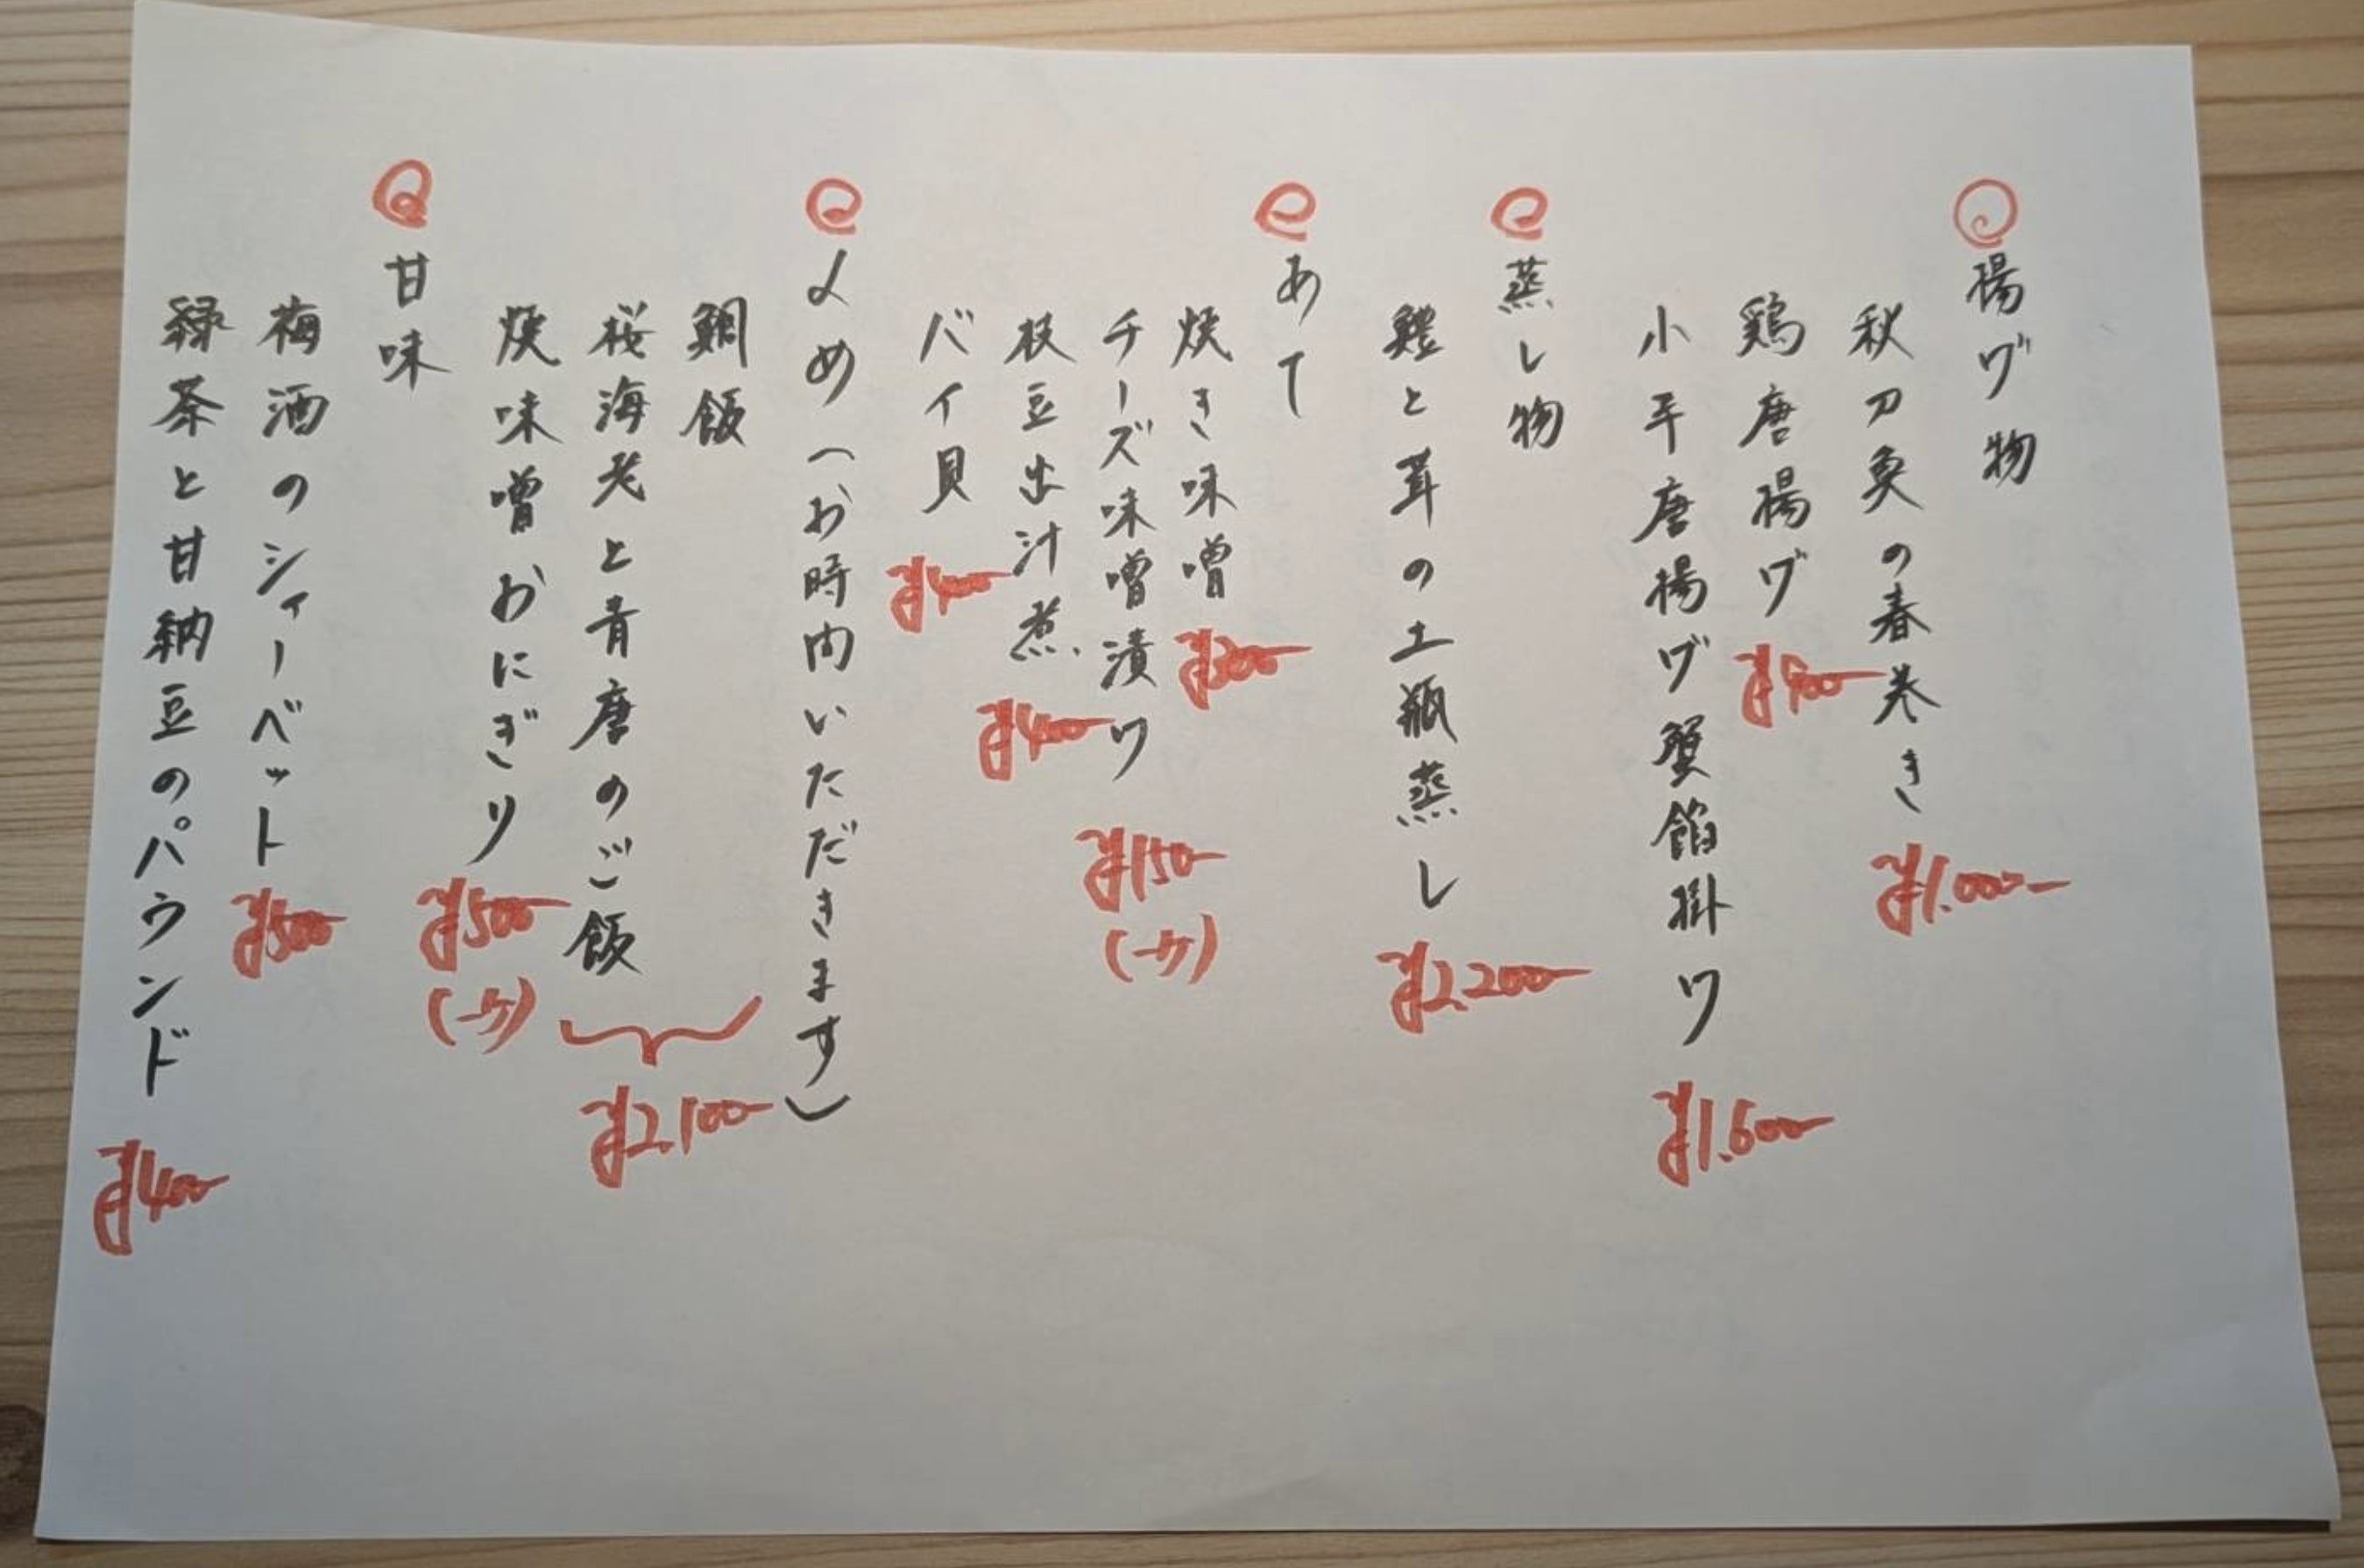 揚げ物
秋刀魚の春巻き ¥1,000-
鶏唐揚げ ¥900-
小芋唐揚げ蟹餡掛け ¥1,600-
蒸し物
鱧と茸の土瓶蒸し ¥2,200-
あて
焼き味噌 ¥300-
チーズ味噌漬け ¥150- (一ケ)
枝豆出汁煮 ¥400-
バイ貝 ¥400-
〆め(お時間いただきます)
鯛飯
桜海老と青唐のご飯
¥2,100-
焼味噌おにぎり ¥500- (一ケ)
甘味
梅酒のシャーベット ¥500-
緑茶と甘納豆のパウンド ¥400-